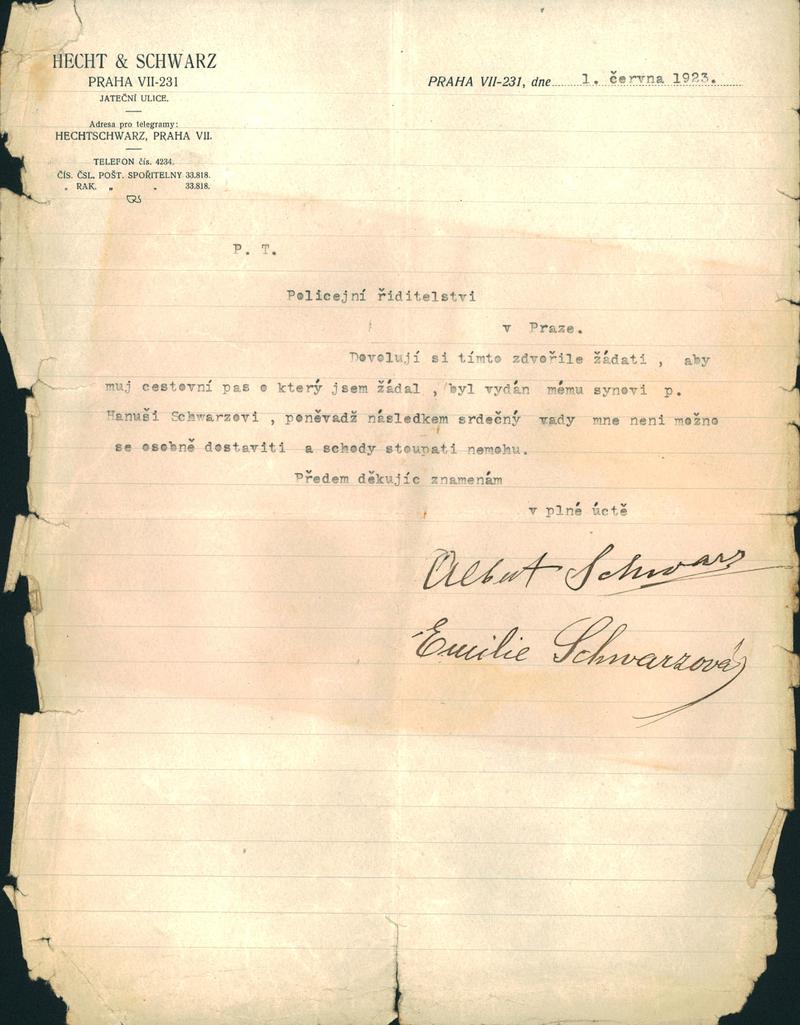 HECHT & SCHWARZ
PRAHA VII-231
JATEČNÍ ULICE.
Adresa pro telegramy:
HECHTSCHWARZ, PRAHA VII.
TELEFON čís. 4234.
ČÍS. ČSL. POŠT. SPOŘITELNY 33.818.
„ RAK. „ „ 33.818.
PRAHA VII-231, dne 1. června 1923.
P. T.
Policejní řiditelstvi
v Praze.
Dovolují si tímto zdvořile žádati , aby
muj cestovní pas o který jsem žádal , byl vydán mému synovi p.
Hanuši Schwarzovi , poněvadž následkem srdečný vady mne neni možno
se osobně dostaviti a schody stoupati nemohu.
Předem děkujíc znamenám
v plné úctě
Albert Schwarz
Emilie Schwarzová